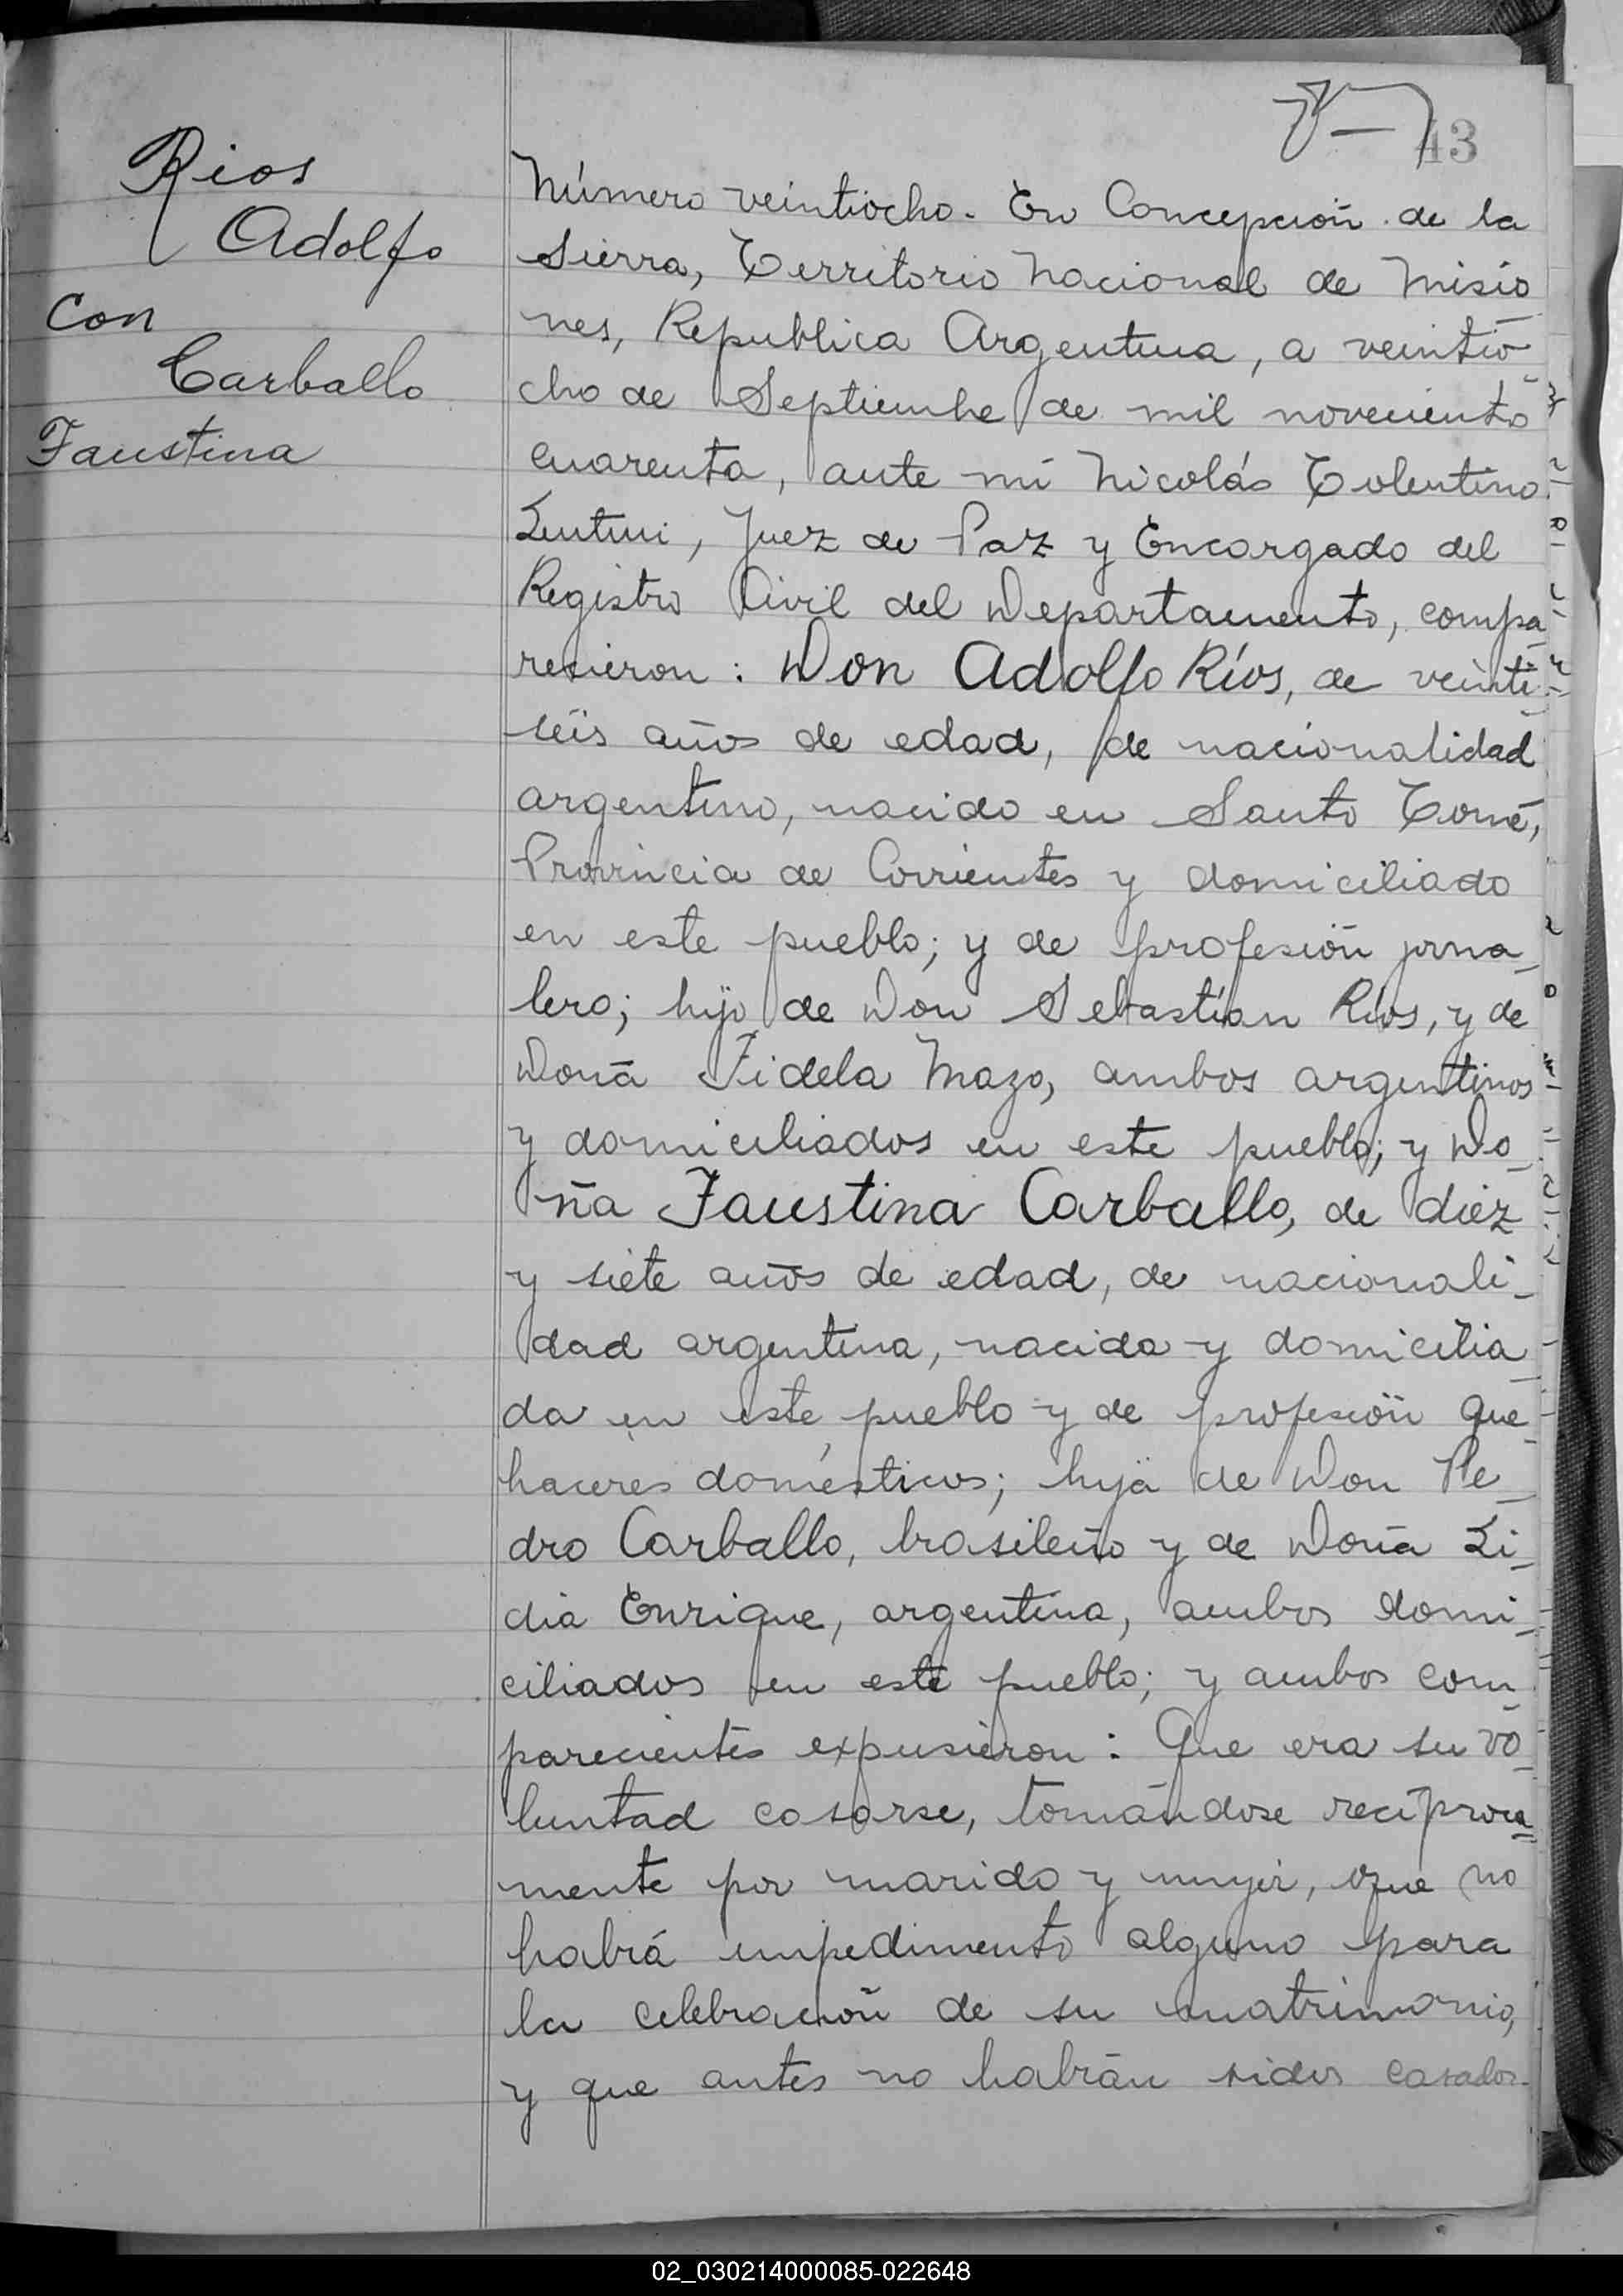 43
Rios
Adolfo
Con
Carballo
Faustina
Número veintiocho. En Concepción de la
Sierra, Territorio Nacional de Misio
nes, Republica Argentina, a veintio
cho de Septiembre de mil novecientos
cuarenta, ante mí Nicolás Tolentino
Lentini, Juez de Paz y Encargado del
Registro Civil del Departamento, compa
recieron: Don Adolfo Ríos, de veinti
séis años de edad, de nacionalidad
argentino, nacido en Santo Tomé,
Provincia de Corrientes y domiciliado
en este pueblo; y de profesión jorna_
lero; hijo de Don Sebastían Ríos, y de
Doña Fidela Mazo, ambos argentinos
y domiciliados en este pueblo; y Do_
ña Faustina Carballo, de diez
y siete años de edad, de nacionali_
dad argentina, nacida y domicilia_
da en este pueblo y de profesión que_
haceres domésticos; hija de Don Pe_
dro Carballo, brasileño y de Doña Li_
dia Enrique, argentina, ambos domi_
ciliados en este pueblo; y ambos com_
parecientes expusieron: Que era su vo_
luntad casarse, tomándose recíproca_
mente por marido y mujer, que no
habrá impedimento alguno para
la celebración de su matrimonio,
y que antes no habrán sidos casados.
02_030214000085-022648